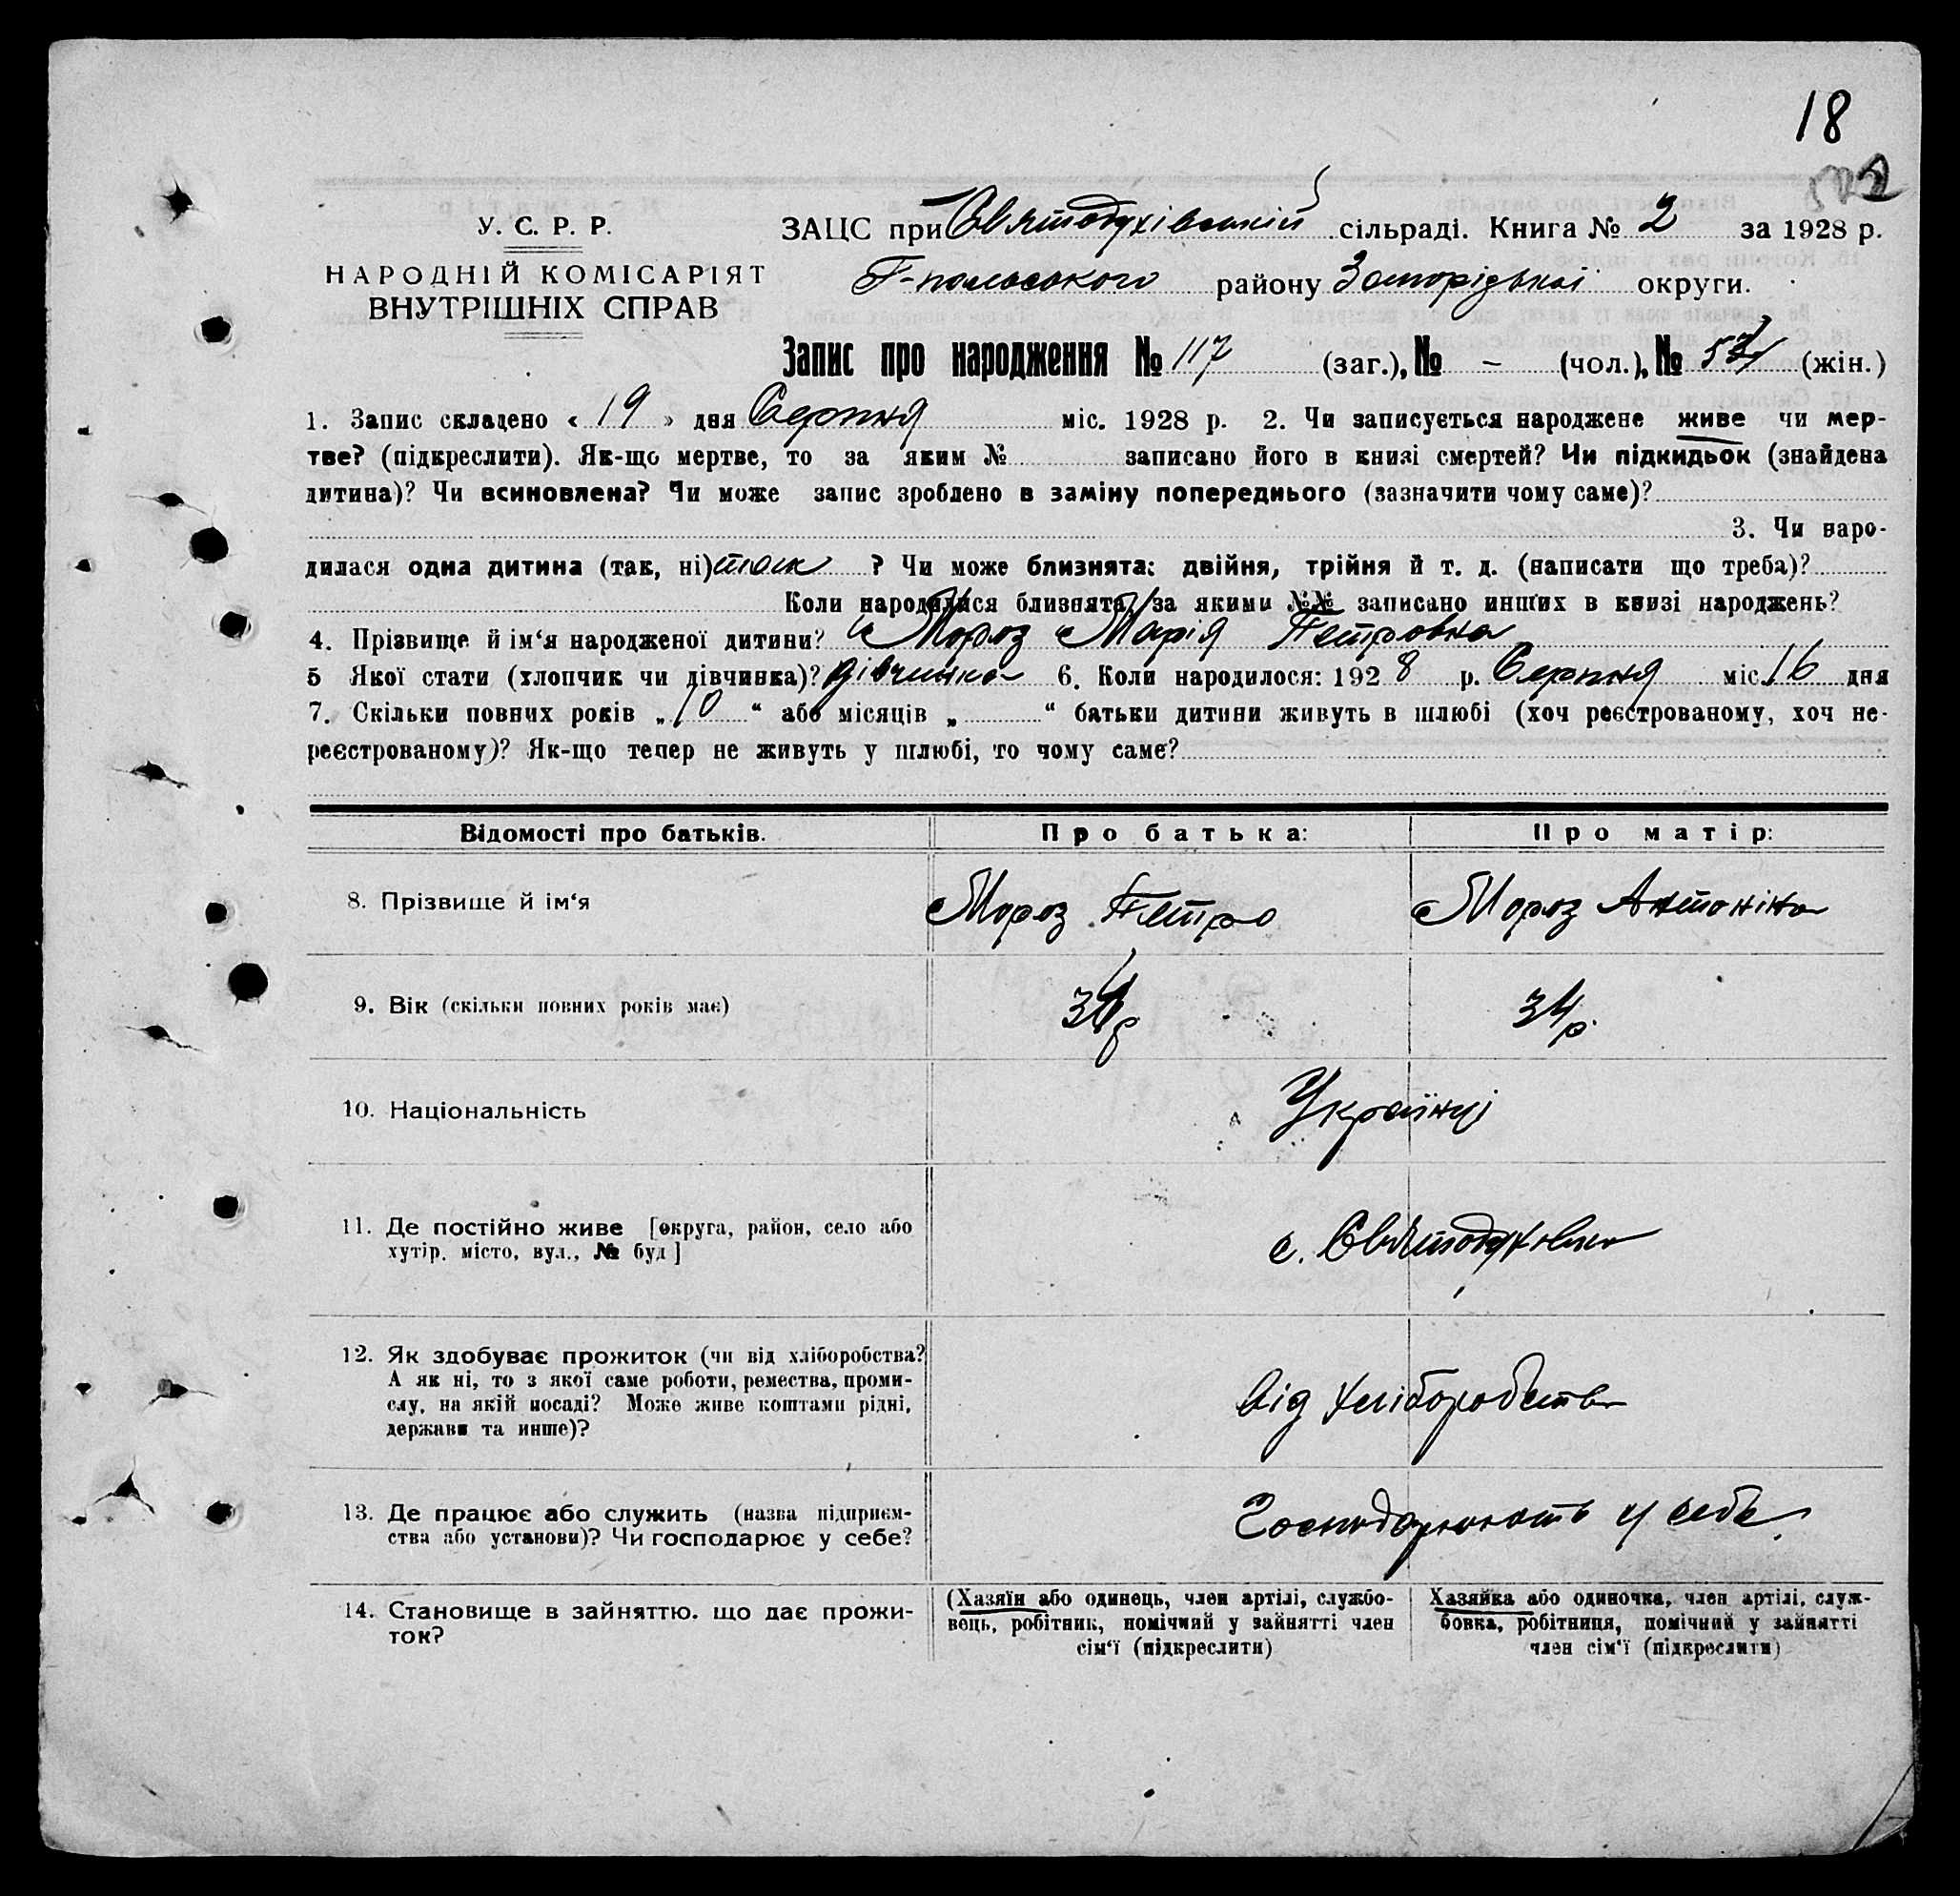 18
572
У. С. Р. Р.
НАРОДНІЙ КОМІСАРІЯТ
ВНУТРІШНІХ СПРАВ
ЗАЦС при Святодухівській сільраді. Книга № 2 за 1928 р.
Г-польського району Запорізької округи.
Запис про народження № 117 (заг.), № - (чол.), № (жін.)
1. Запис складено « 19 » дня Серпня міс. 1928 р. 2. Чи записується народжене живе чи мер-
тве? (підкреслити). Як-що мертве, то за яким № записано його в книзі смертей? Чи підкидьок (знайдена
дитина)? Чи всиновлена? Чи може запис зроблено в заміну попереднього (зазначити чому саме)?
3. Чи наро-
дилася одна дитина (так, ні) так ? Чи може близнята: двійня, трійня й т. д. (написати що треба)?
Коли народилися близнята, за якими №№ записано инших в книзі народжень?
4. Прізвище й ім‘я народженої дитини? Мороз Марія Петровна
5 Якої стати (хлопчик чи дівчинка)? дівчинка 6. Коли народилося: 1928 р. Серпня міс. 16 дня
7. Скільки повних років „ 10 “ або місяців „ “ батьки дитини живуть в шлюбі (хоч реєстрованому, хоч не-
реєстрованому)? Як-що тепер не живуть у шлюбі, то чому саме?
Відомості про батьків. Про батька: Про матір:
8. Прізвище й ім‘я Мороз Петро Мороз Антоніна
9. Вік (скільки повних років має) 34 р. 34 р.
10. Національність Українці
11. Де постійно живе [округа, район, село або
хутір. місто, вул., № буд] с. Святодуховка
12. Як здобуває прожиток (чи від хліборобства?
А як ні, то з якої саме роботи, ремества, проми-
слу, на якій посаді? Може живе коштами рідні,
держави та инше)? від хліборобства
13. Де працює або служить (назва підприєм-
ства або установи)? Чи господарює у себе? Господарюють у себе.
14. Становище в зайняттю. що дає прожи-
ток?
(Хазяїн або одинець, член артілі, службо-
вець, робітник, помічний у зайнятті член
сім‘ї (підкреслити)
Хазяйка або одиночка, член артілі, служ-
бовка, робітниця, помічний у зайнятті
член сім‘ї (підкреслити)